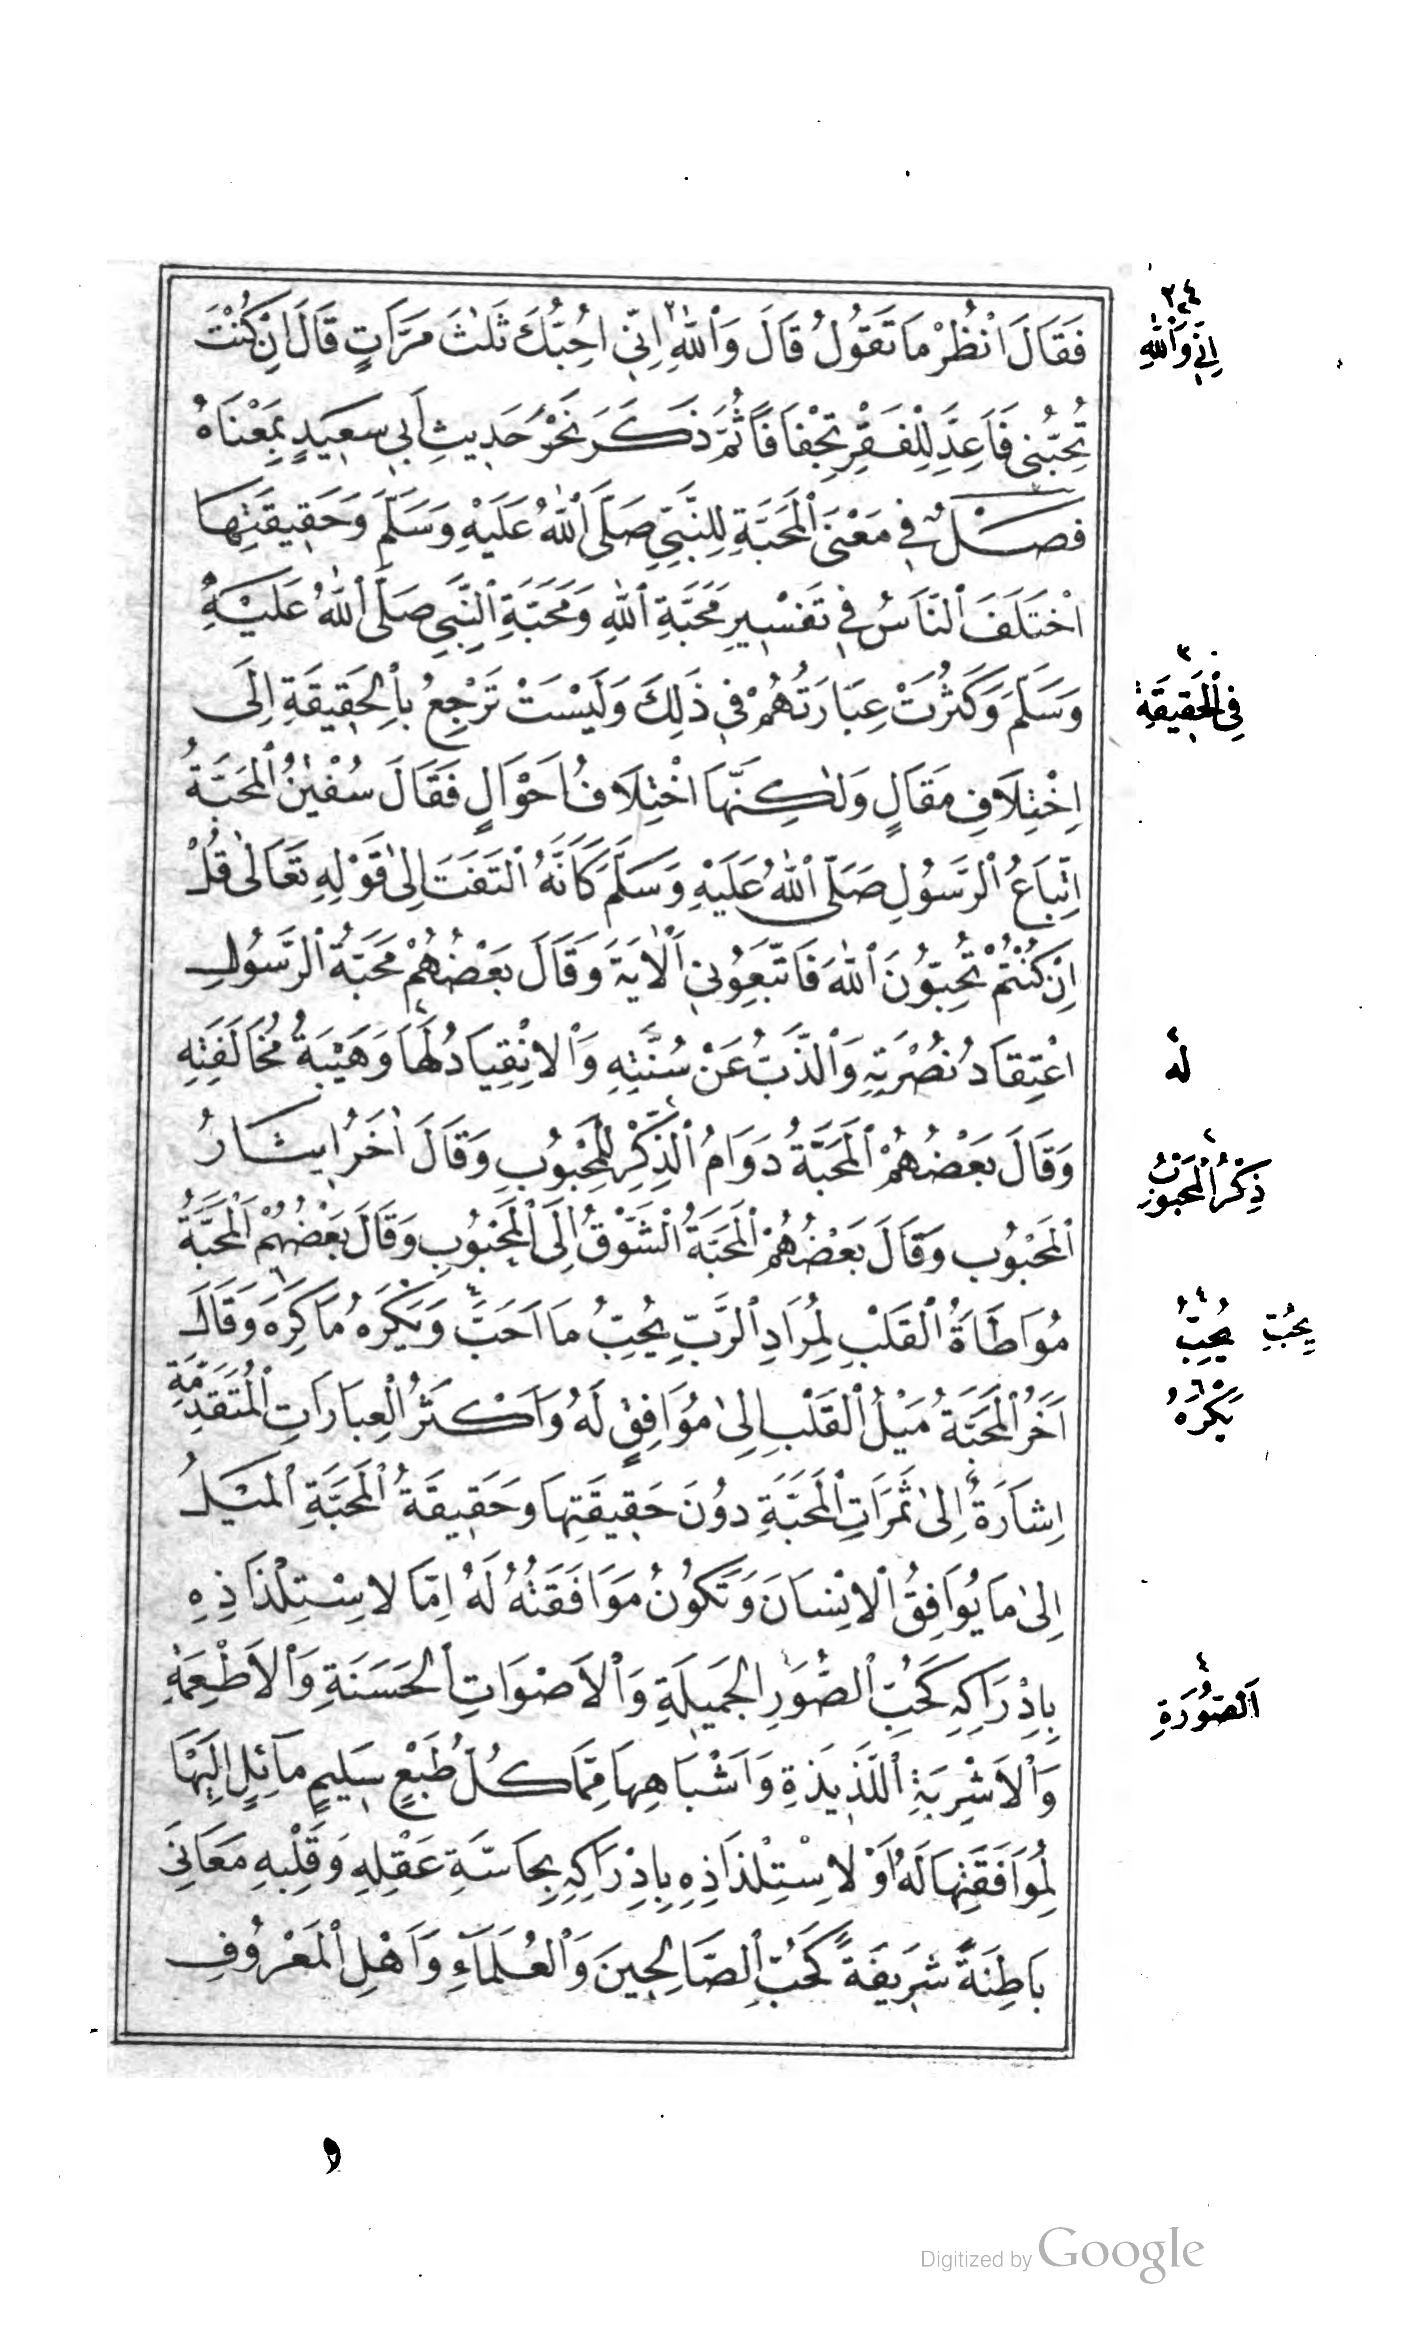 فَقَالَ انْظُرْ مَا تَقُولُ قَالَ وَاللّٰهِ اِنِّي اُحِبُّكَ ثَلٰثَ مَرَّاتٍ قَالَ اِنْ كُنْتَ
تُحِبُّنِي فَاَعِدَّ لِلْفَقْرِ تِجْفَافًا ثُمَّ ذَكَرَ نَحْوَ حَدِيثِ اَبِي سَعِيدٍ بِمَعْنَاهُ
فَصْلٌ فِي مَعْنَى الْمَحَبَّةِ لِلنَّبِيِّ صَلَّى اللّٰهُ عَلَيْهِ وَسَلَّمَ وَحَقِيقَتِهَا
اخْتَلَفَ النَّاسُ فِي تَفْسِيرِ مَحَبَّةِ اللّٰهِ وَمَحَبَّةِ النَّبِيِّ صَلَّى اللّٰهُ عَلَيْهِ
وَسَلَّمَ وَكَثُرَتْ عِبَارَتُهُمْ فِي ذَلِكَ وَلَيْسَتْ تَرْجِعُ بِالْحَقِيقَةِ اِلَى
اِخْتِلَافِ مَقَالٍ وَلٰكِنَّهَا اخْتِلَافُ اَحْوَالٍ فَقَالَ سُفْيٰنُ الْمَحَبَّةُ
اِتِّبَاعُ الرَّسُولِ صَلَّى اللّٰهُ عَلَيْهِ وَسَلَّمَ كَاَنَّهُ الْتَفَتَ اِلٰى قَوْلِهِ تَعَالٰى قُلْ
اِنْ كُنْتُمْ تُحِبُّونَ اللّٰهَ فَاتَّبِعُونِي الْاٰيَةَ وَقَالَ بَعْضُهُمْ مَحَبَّةُ الرَّسُولِ
اعْتِقَادُ نُصْرَتِهِ وَالذَّبُّ عَنْ سُنَّتِهِ وَالْاِنْقِيَادُ لَهَا وَهَيْبَةُ مُخَالَفَتِهِ
وَقَالَ بَعْضُهُمْ الْمَحَبَّةُ دَوَامُ الذِّكْرِ لِلْمَحْبُوبِ وَقَالَ اٰخَرُ ايثَارُ
الْمَحْبُوبِ وَقَالَ بَعْضُهُمْ الْمَحَبَّةُ الْشَّوْقُ اِلَى الْمَحْبُوبِ وَقَالَ بَعْضُهُمْ الْمَحَبَّةُ
مُوَاطَاَةُ الْقَلْبِ لِمُرَادِ الرَّبِّ يُحِبُّ مَا اَحَبَّ وَيَكْرَهُ مَا كَرِهَ وَقَالَ
اٰخَرُ الْمَحَبَّةُ مَيْلُ الْقَلْبِ اِلٰى مُوَافِقٍ لَهُ وَاَكْثَرُ الْعِبَارَاتِ الْمُتَقَدِّمَةِ
اِشَارَةٌ اِلٰى ثَمَرَاتِ الْمَحَبَّةِ دُونَ حَقِيقَتِهَا وَحَقِيقَةُ الْمَحَبَّةِ الْمَيْلُ
اِلٰى مَا يُوَافِقُ الْاِنْسَانَ وَتَكُونُ مَوَافَقَتُهُ لَهُ اِمَّا لِاسْتِلْذَاذِهِ
بِاِدْرَاكِهِ كَحُبِّ الصُّوَرِ الْجَمِيلَةِ وَالْاَصْوَاتِ الْحَسَنَةِ وَالْاَطْعِمَةِ
وَالْاَشْرِبَةِ اللَّذِيذَةِ وَاَشْبَاهِهَا مِمَّا كُلُّ طَبْعٍ سَلِيمٍ مَائِلٍ اِلَيْهَا
لِمُوَافَقَتِهَا لَهُ اَوْ لِاسْتِلْذَاذِهِ بِاِدْرَاكِهِ بِحَاسَّةِ عَقْلِهِ وَقَلْبِهِ مَعَانِيَ
بَاطِنَةً شَرِيفَةً كَحُبِّ الصَّالِحِينَ وَالْعُلَمَاءِ وَاَهْلِ الْمَعْرُوفِ
٣ ٤ ٢
اِنِّي وَاللّٰهِ
٣
فِي الْحَقِيقَةِ
٤
لَهُ
٤
ذِكْرُ الْمَحْبُوبِ
٤
يُحِبُّ يُحِبِّ
٦
يَكْرَهُ
٤
اَلصُّورَةِ
و
Digitized by Google